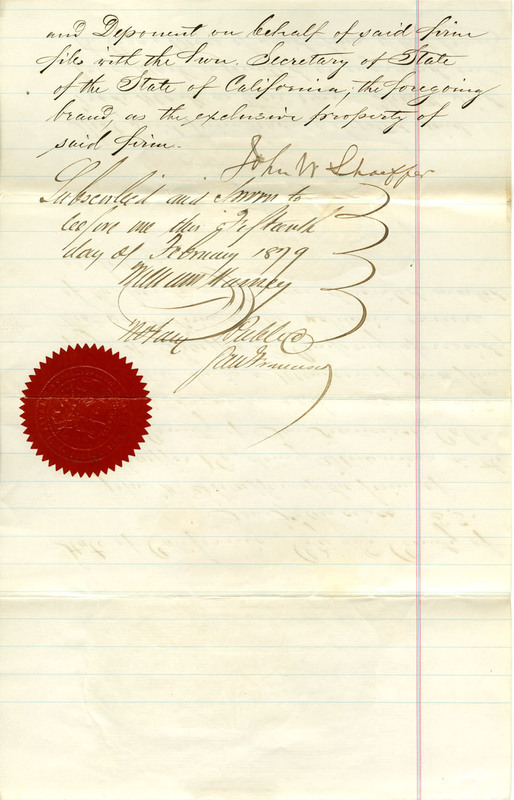 and Deponent on behalf of said firm
files with the Hon. Secretary of State
of the State of California, the foregoing
brand, as the exclusive property of
said firm.
John W Shaeffer
Subscribed and Sworn to
before me this fifteenth
day of February 1879
William Harney
Notary Public
San Francisco